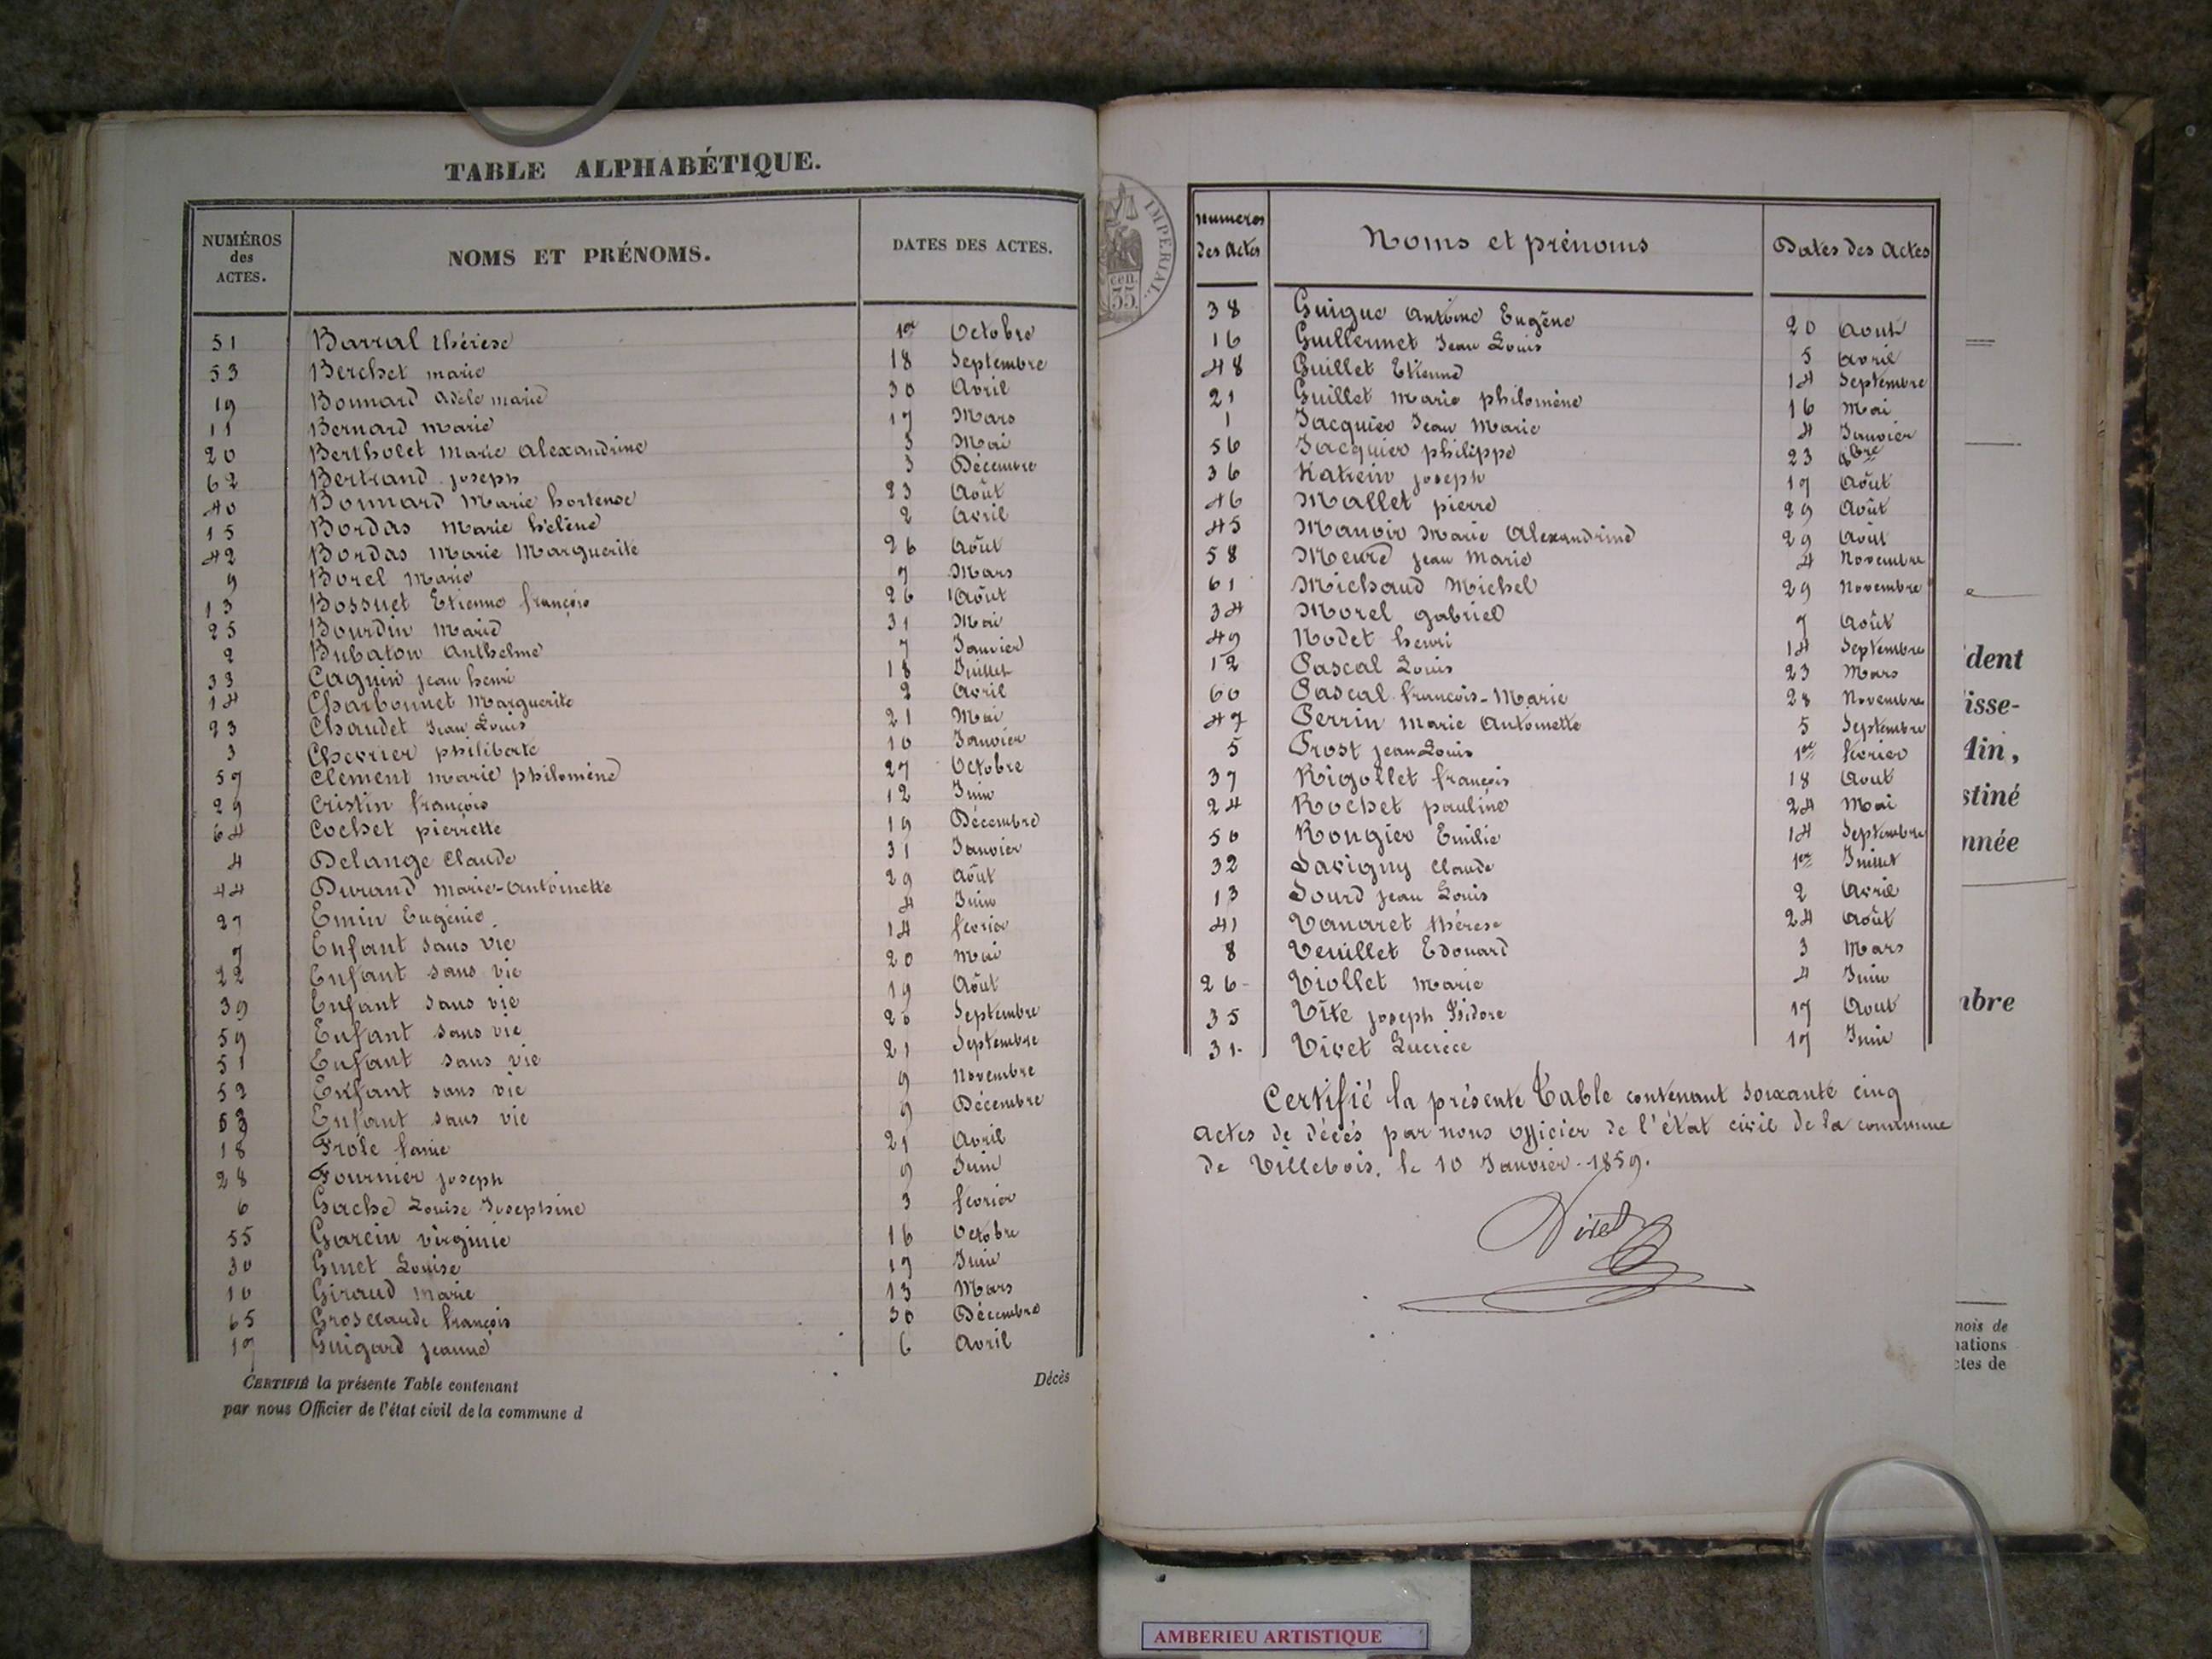 TABLE ALPHABÉTIQUE.
NUMÉROS des ACTES. NOMS ET PRÉNOMS. DATES DES ACTES.
51 Barral thérèse 1er Octobre
53 Berchet marie 18 Septembre
19 Bonnard Adèle marie 30 Avril
11 Bernard marie 17 Mars
20 Bertholet Marie Alexandrine 3 Mai
62 Bertrand joseph 3 Décembre
40 Bonnard Marie hortense 23 Août
15 Bordas Marie hélène 2 Avril
42 Bordas Marie Marguerite 26 Août
9 Borel Marie 7 Mars
13 Bossuet Etienne françois 26 Août
25 Bourdin Marie 31 Mai
2 Bubaton Anthelme 7 Janvier
33 Caguin jean henri 18 Juillet
14 Charbonnet Marguerite 2 Avril
23 Chaudet Jean Louis 21 Mai
3 Chevrier philiberte 10 Janvier
57 Clement marie philomène 27 Octobre
29 Cristin françois 12 Juin
64 Cochet pierrette 19 Décembre
4 Delange Claude 31 Janvier
44 Durand Marie-Antoinette 29 Août
27 Emin Eugénie 4 Juin
7 Enfant sans vie 14 fevrier
22 Enfant sans vie 20 Mai
39 Enfant sans vie 19 Août
59 Enfant sans vie 20 Septembre
51 Enfant sans vie 21 Septembre
52 Enfant sans vie 9 Novembre
53 Enfant sans vie 9 Décembre
18 Frole fanie 21 Avril
28 Fournier joseph 9 Juin
6 Gache Louise Josephine 3 fevrier
55 Garcin virginie 16 Octobre
30 Ginet Louise 17 Juin
10 Giraud Marie 13 Mars
65 Grosclaude françois 30 Décembre
17 Guigard jeanne 6 Avril
CERTIFIÉ la présente Table contenant Décès
par nous Officier de l'état civil de la commune d
IMPERIAL.
cen.
35
numeros des Actes Noms et prénoms Dates des Actes
38 Guigue Antoine Eugène 20 Aout
16 Guillermet Jean Louis 5 Avril
48 Guillet Etienne 14 Septembre
21 Guillet Marie philomène 16 Mai
1 Jacquier Jean Marie 4 Janvier
56 Jacquier philippe 23 8bre
36 Katrein joseph 17 Août
46 Mallet pierre 29 Août
45 Manoir Marie Alexandrine 29 Août
58 Meure jean Marie 4 Novembre
61 Michaud Michel 29 Novembre
34 Morel gabriel 7 Août
49 Nodet henri 14 Septembre
12 Pascal Louis 23 Mars
60 Pascal françois-Marie 28 Novembre
47 Perrin Marie Antoinette 5 Septembre
5 Prost jean Louis 1er fevrier
37 Rigollet françois 18 Aout
24 Rochet pauline 24 Mai
50 Rougier Emilie 14 Septembre
32 Savigny Claude 1er Juillet
13 Sourd jean Louis 2 Avril
41 Vanaret thérèse 24 Août
8 Veuillet Edouard 3 Mars
26 Viollet Marie 4 Juin
35 Vite joseph Isidore 17 Aout
31 Vivet Lucrèce 17 Juin
Certifié la présente Table contenant soixante cinq
actes de décès par nous officier de l'état civil de la commune
de Villebois, le 10 Janvier 1859.
dent
isse-
lin,
stiné
nnée
nbre
nois de
nations
ctes de
AMBERIEU ARTISTIQUE